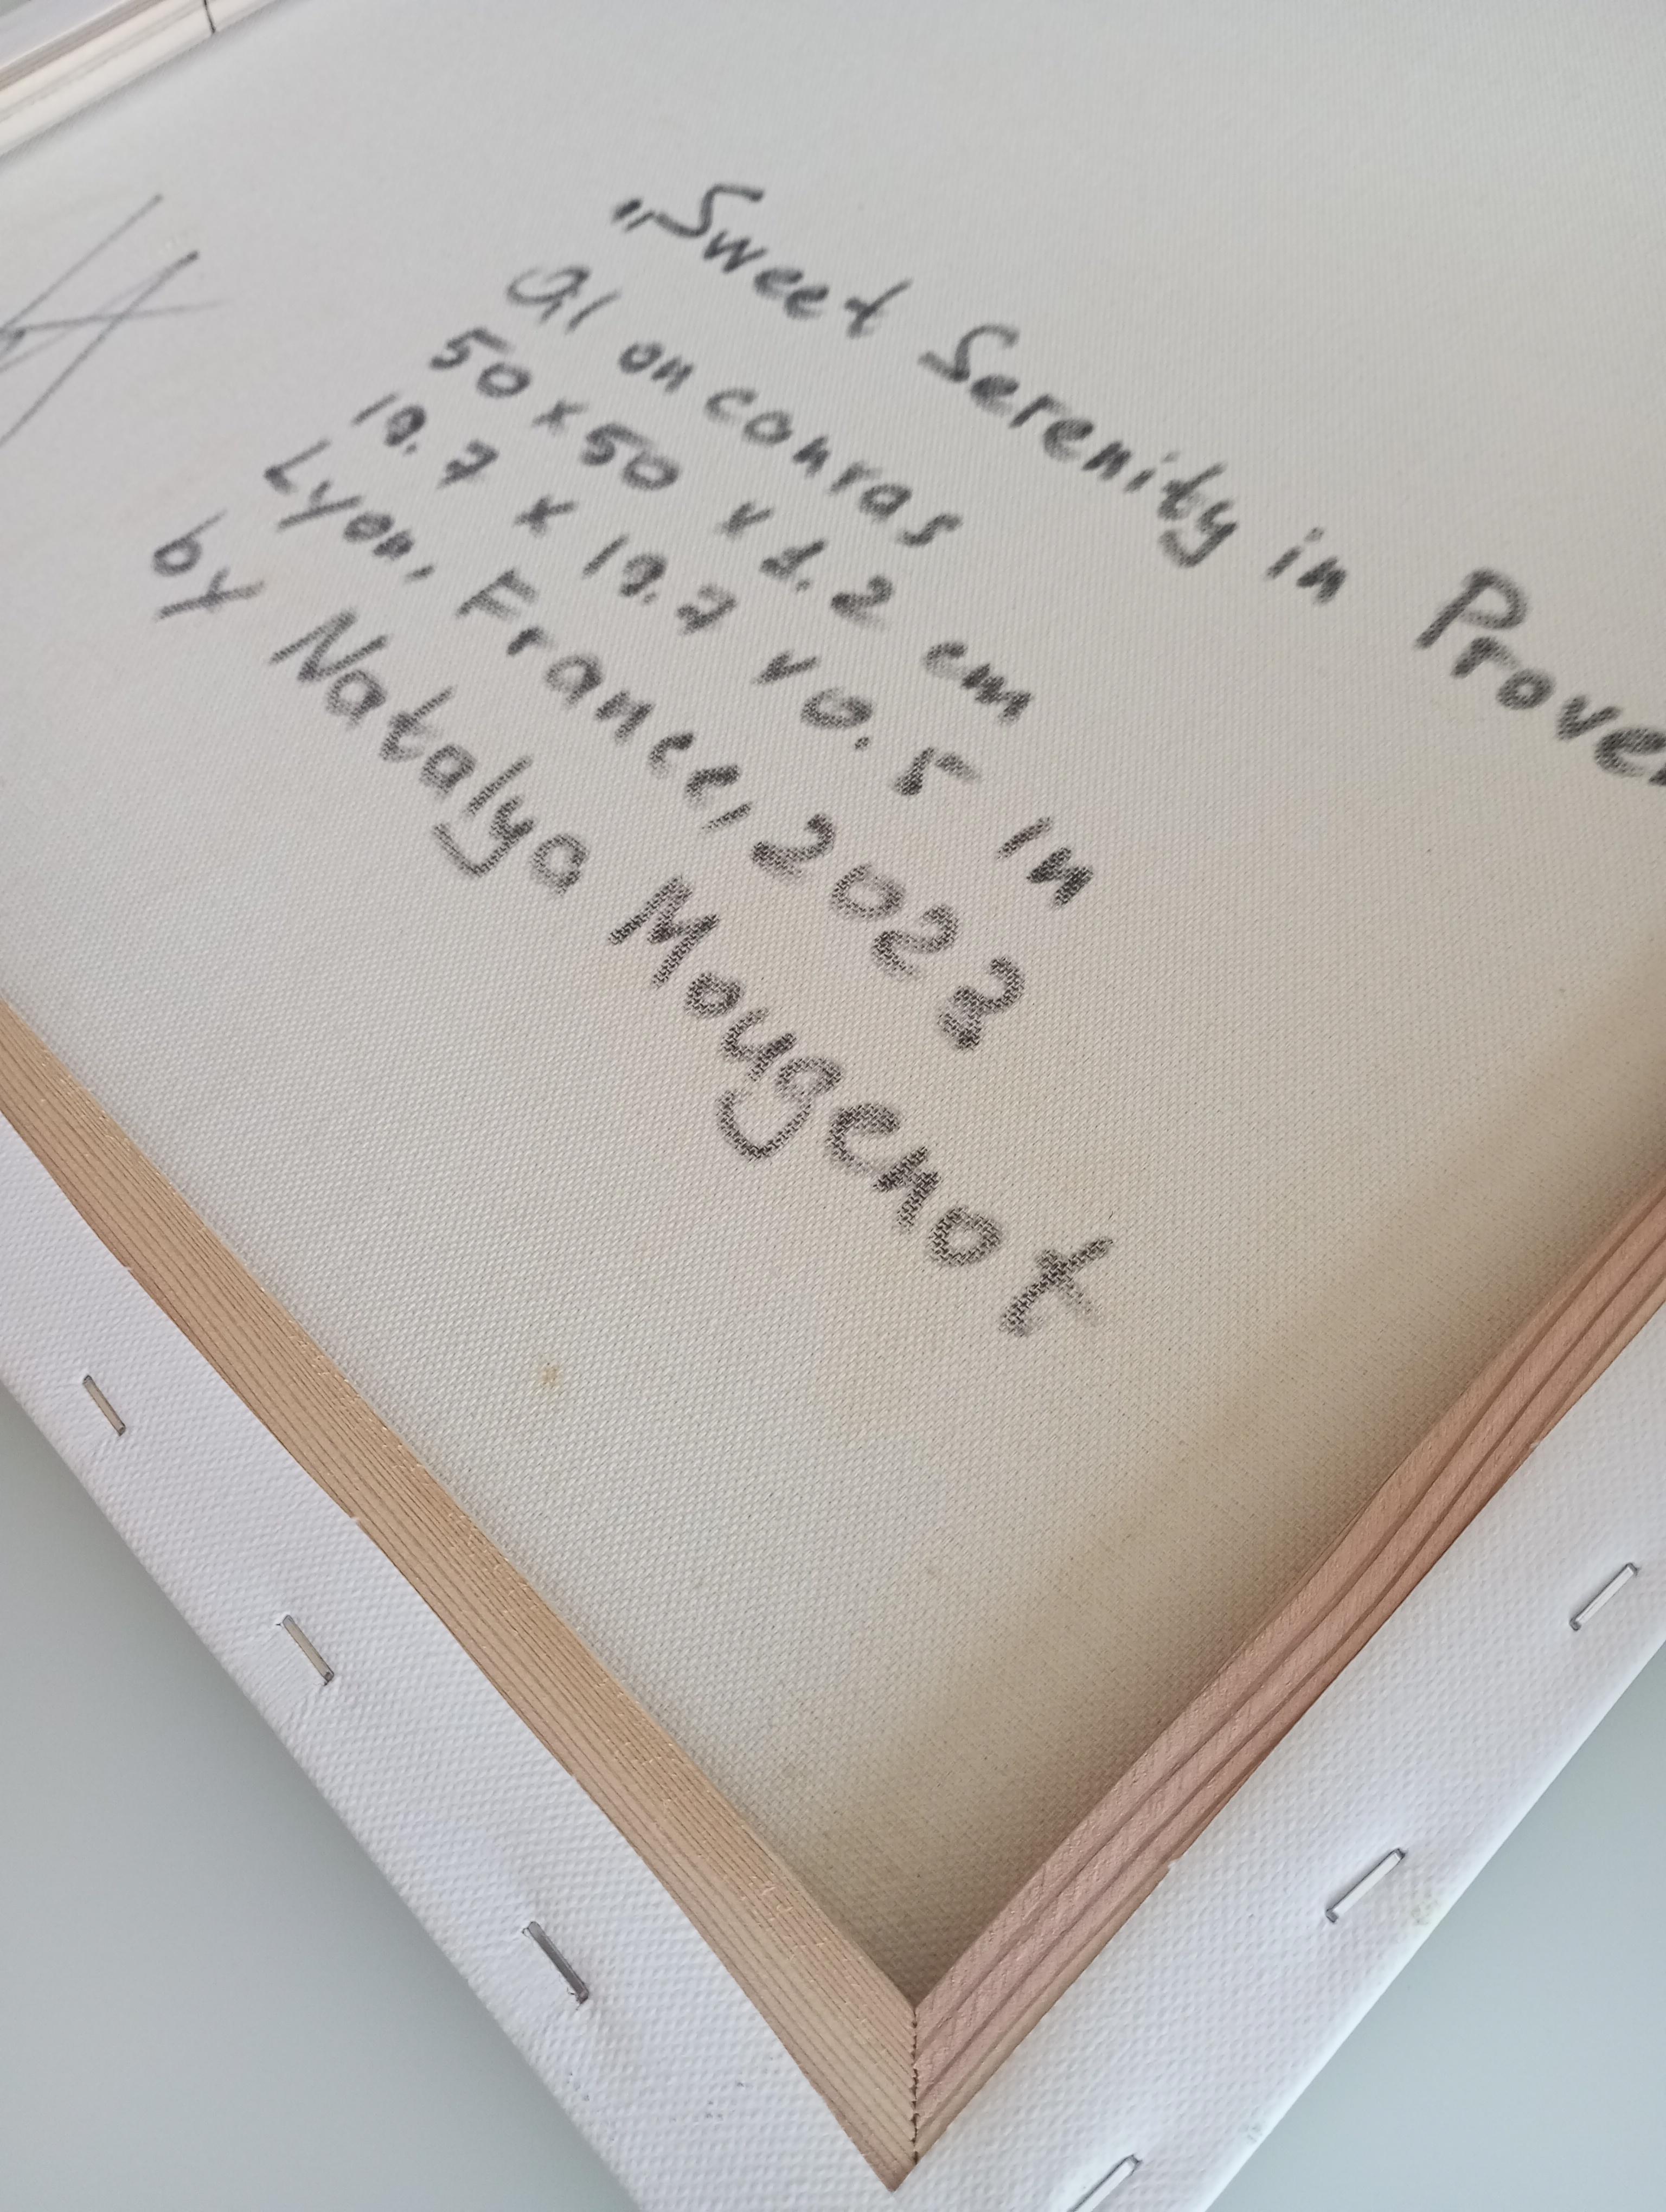 „Sweet Serenity in Prove
Oil on canvas
50 x 50 x 1.2 cm
19.7 x 19.7 x 0.5 in
Lyon, France, 2023
by Natalya Mougenot